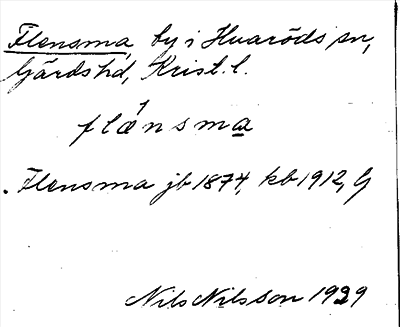 Flensma, by i Huaröds sn,
Gärds hd, Krist. l.
flæ´nsma
. Flensma jb 1874, kb 1912, G
Nils Nilsson 1929